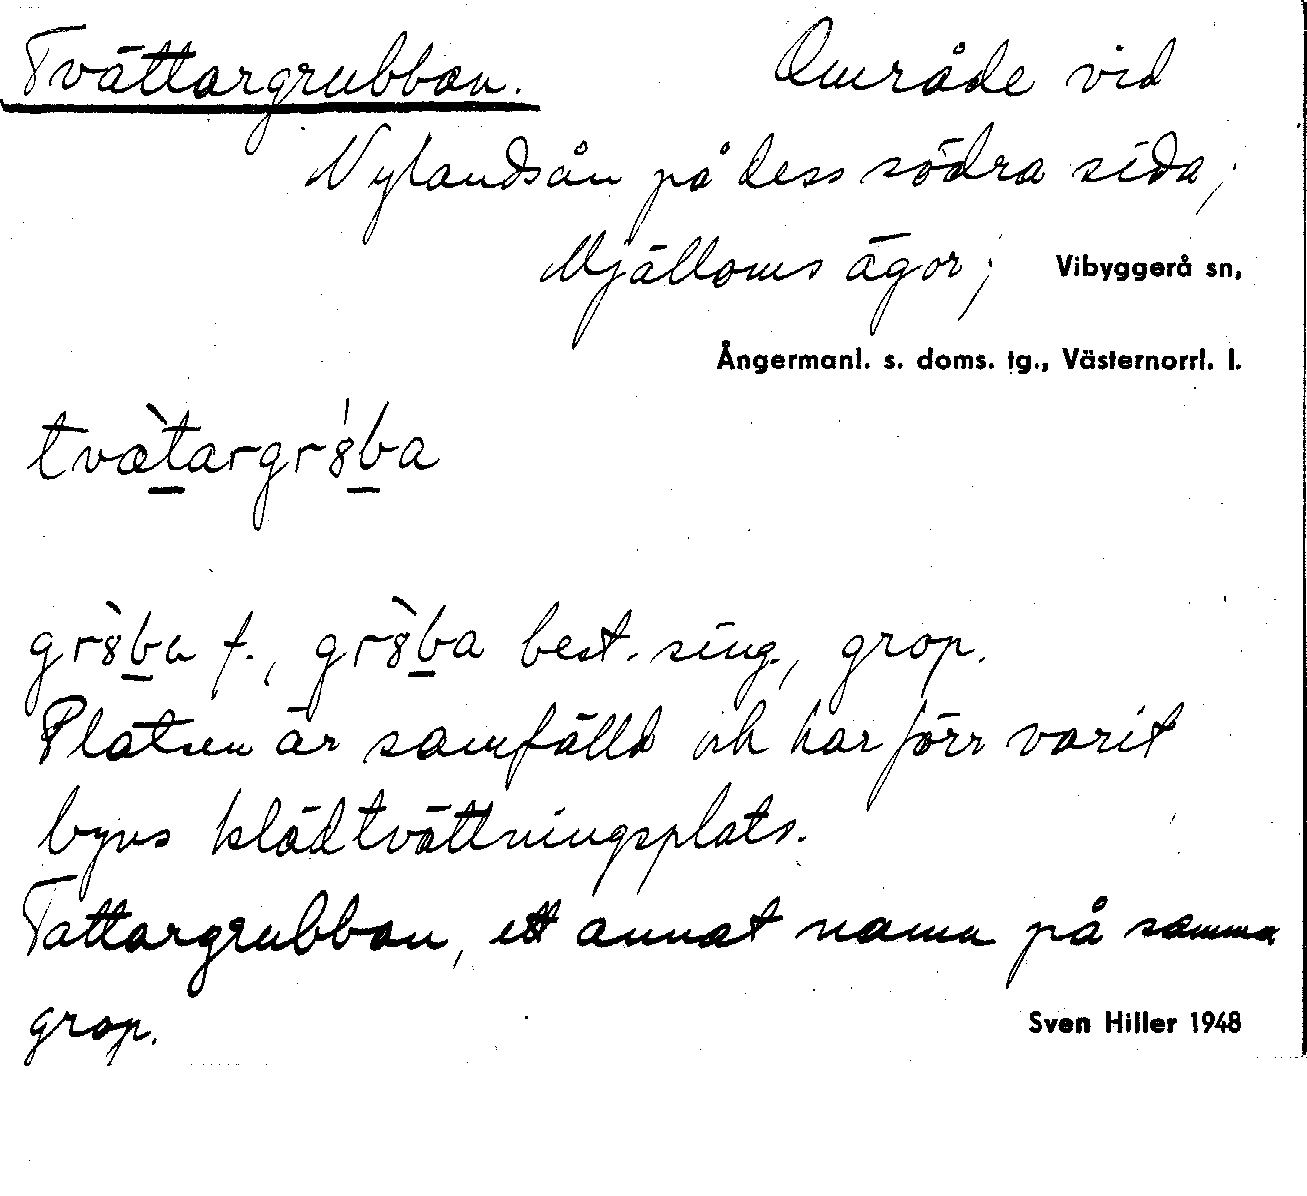 Tvättargrubban. Område vid
Nylandsån på dess södra sida;
Mjälloms ägor; Vibyggerå sn,
Ångermanl. s. doms. tg., Västernorrl. l.
tvæ̀t̲argr8́b̲a
gr8̀b̲a f., gr8̀b̲a best. sing., grop.
Platsen är samfälld och har förr varit
byns klädtvättningsplats.
Tattargrubban, ett annat namn på samma
grop.
Sven Hiller 1948